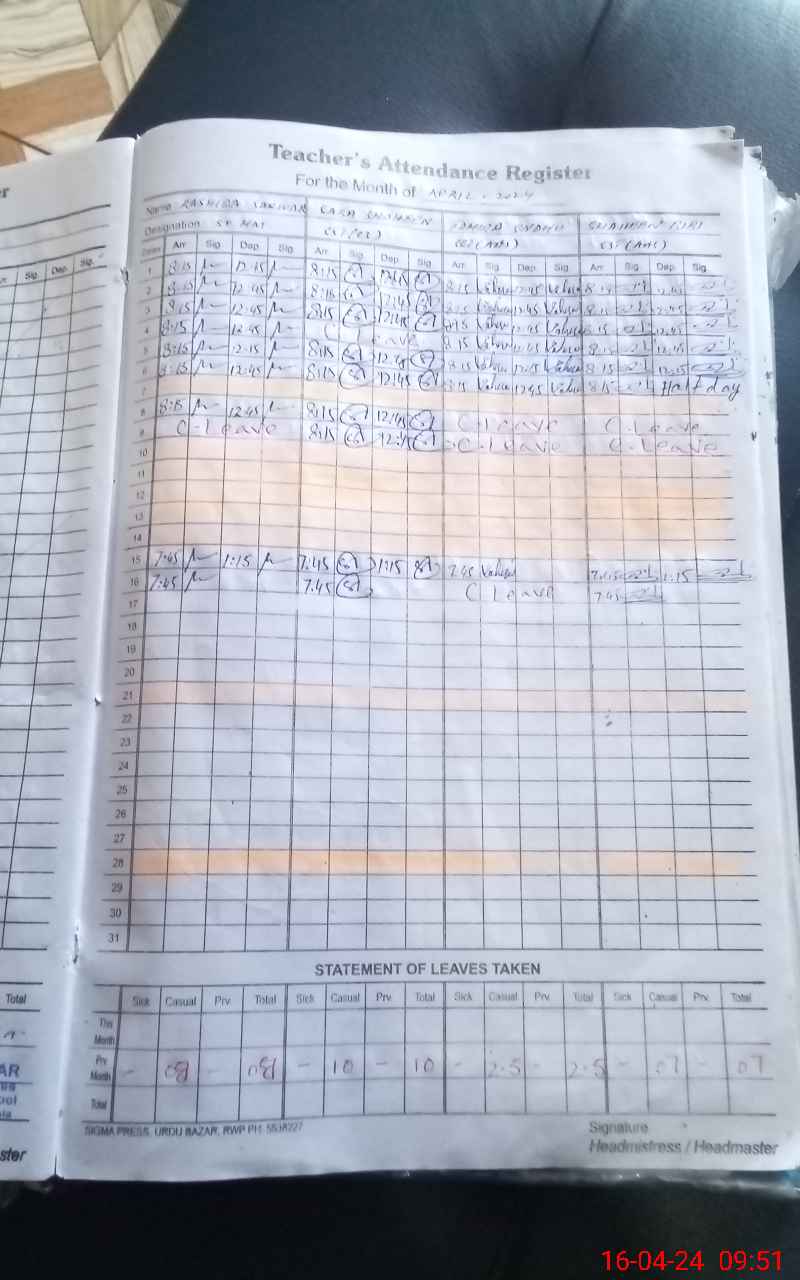 Teacher's Attendance Register
For the Month of APRIL. 2024
Name RASHIDA SARWAR SARA SHAHEEN
Designation
Dates Arr Sig Dep Sig Arr Sig Dep Sig Arr Sig Dep Sig Arr Sig Dep Sig
1 8:15 12:45 8:15 12:45 8:15 12:45 8:15 12:45
2 8:15 12:45 8:15 12:45 8:15 12:45 8:15 12:45
3 8:15 12:45 8:15 12:45 8:15 12:45 8:15 12:45
4 8:15 12:45 C Leave 8:15 12:45 8:15 12:45
5 8:15 12:45 8:15 12:45 8:15 12:45 8:15 12:45
6 8:15 12:45 8:15 12:45 8:15 12:45 8:15 Half day
7
8 8:15 12:45 8:15 12:45 C.Leave C.Leave
9 C-Leave 8:15 12:45 C.Leave C.Leave
10
11
12
13
14
15 7:45 1:15 7:45 1:15 7:45 7:45 1:15
16 7:45 7:45 C Leave 7:45
17
18
19
20
21
22
23
24
25
26
27
28
29
30
31
STATEMENT OF LEAVES TAKEN
Sick Casual Prv. Total Sick Casual Prv. Total Sick Casual Prv. Total Sick Casual Prv. Total
This Month
Prv. Month - 08 - 08 - 10 - 10 - 2.5 - 2.5 - 07 - 07
Total
SIGMA PRESS, URDU BAZAR, RWP PH: 5538227
Signature
Headmistress / Headmaster
Sig. Dep. Sig.
Total
AR
ster
16-04-24 09:51